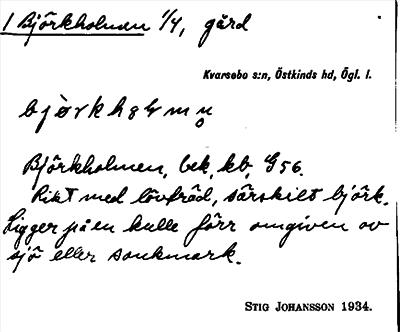 1 Björkholmen 1/4, gård
Kvarsebo s:n, Östkinds hd, Ögl. l.
Björkholmen, bek, kb, G56.
Rikt med lövträd, särskilt björk.
Ligger på en kulle förr omgiven av
sjö eller sankmark.
STIG JOHANSSON 1934.